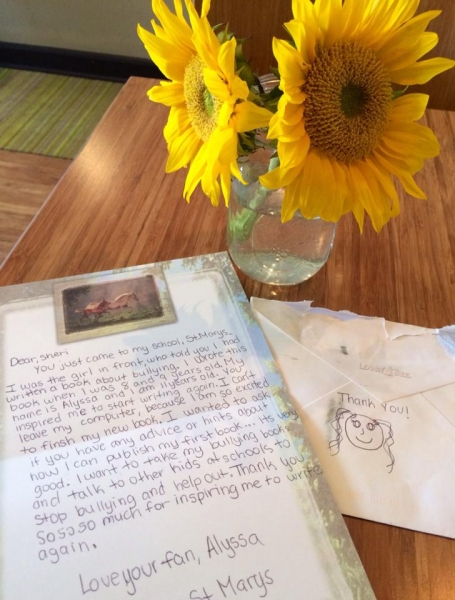 Dear, Sheri
You just came to my school, St Marys.
I was the girl in front, who told you I had
written a book about bullying. I wrote this
book when I was 8 and 9 years old. My
name is Alyssa and I am 11 years old. You
inspired me to start writing again. I can't
leave my computer, because I am so excited
to finsh my new book. I wanted to ask
if you have any advice or hints about
how I can publish my first book... Its very
good. I want to take my bullying books
and talk to other kids at schools to
stop bullying and help out. Thank you
so so so much for inspiring me to write
again.
Love your fan, Alyssa
St Marys
Thank You!